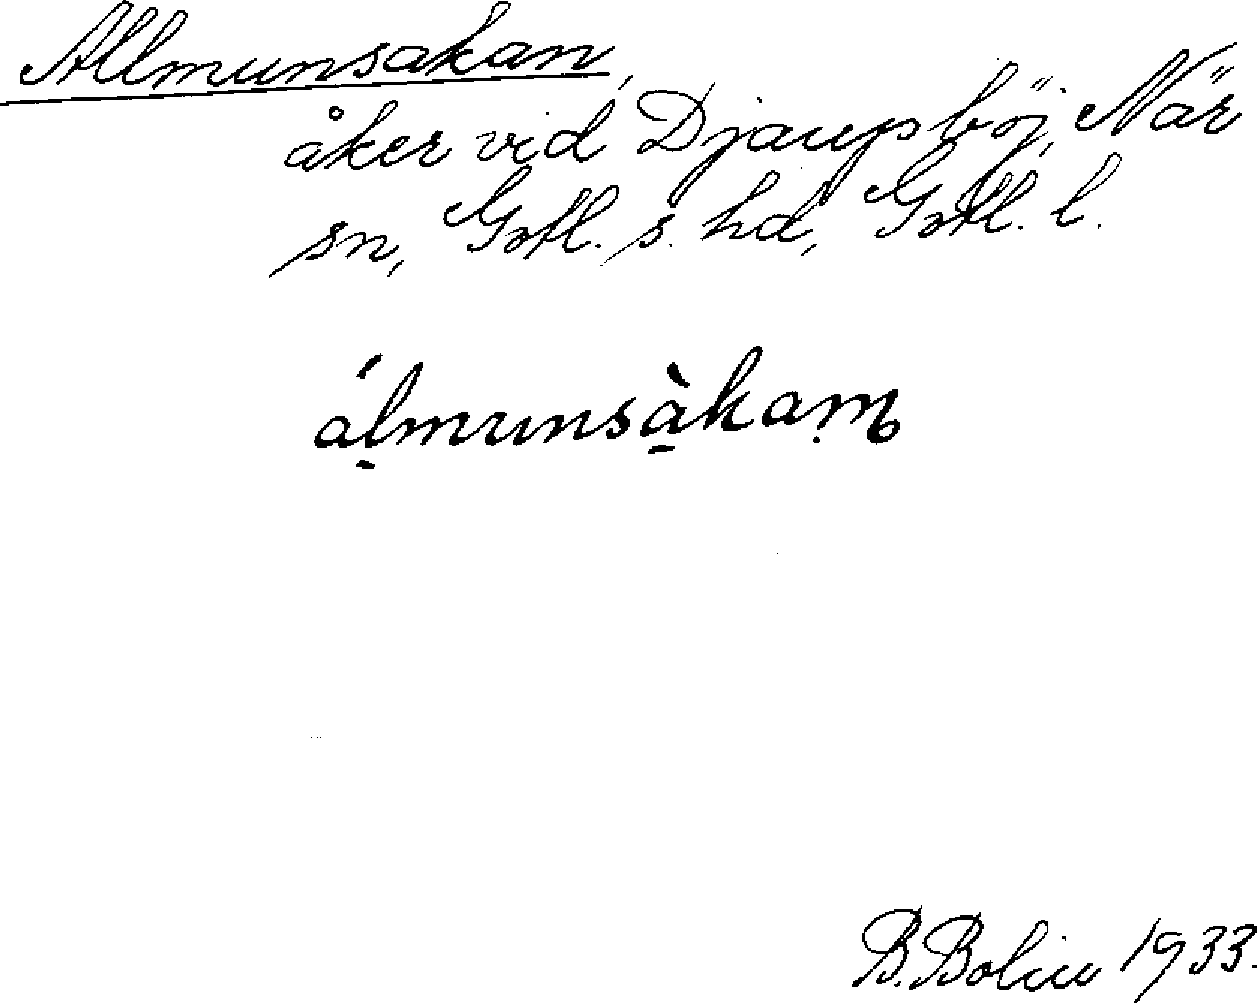 Allmunsakan,
åker vid Djaupsböj, När
sn, Gotl. s. hd, Gotl. l.
álmunsàkaŋ
B. Bolin 1933.